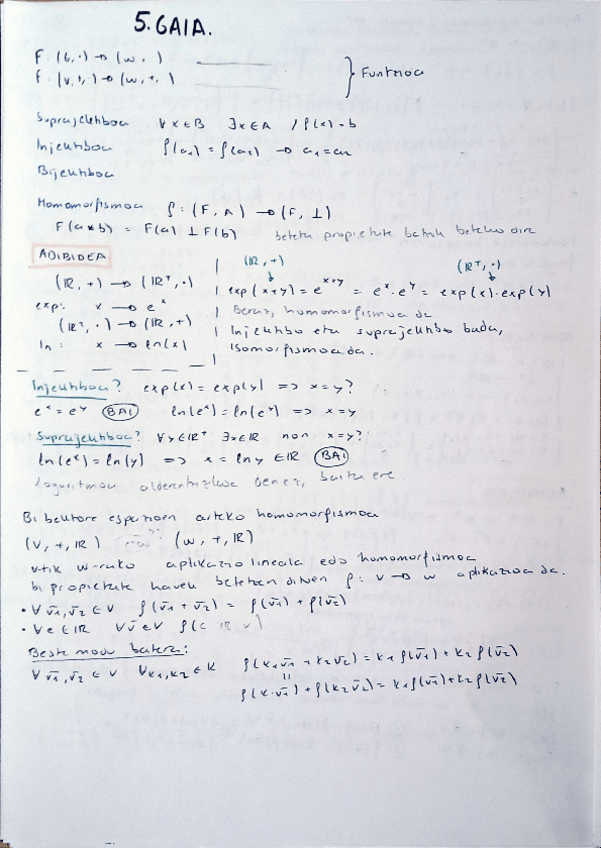 5. GAIA.
F: (G, ·) → (W, )
F: (V, +, ) → (W, +, ) } Funtzioa
Suprajektiboa ∀x∈B ∃x∈A / f(x)=b
Injektiboa f(a₁) = f(a₂) → a₁=a₂
Bijektiboa
Homomorfismoa f: (F, ∧) → (F, ⊥)
F(a*b) = F(a) ⊥ F(b) propietate batzuk beteko dira
ADIBIDEA
(ℝ, +) → (ℝ⁺, ·)
exp: x → eˣ
(ℝ⁺, ·) → (ℝ, +)
ln: x → ln(x)
(ℝ, +) (ℝ⁺, ·)
exp(x+y) = e^(x+y) = eˣ · e^y = exp(x) · exp(y)
Beraz, homomorfismoa da
Injektibo eta suprajektibo bada,
Isomorfismoa da.
Injektiboa? exp(x) = exp(y) => x=y?
eˣ = e^y BAI ln(eˣ) = ln(e^y) => x=y
Suprajektiboa? ∀y∈ℝ⁺ ∃x∈ℝ non x=y?
ln(eˣ) = ln(y) => x = ln y ∈ ℝ BAI
logaritmoa alderantzizkoa denez, baita ere
Bi bektore espazioen arteko homomorfismoa
(V, +, ℝ) (W, +, ℝ)
V-tik W-rako aplikazio lineala edo homomorfismoa
bi propietate hauek betetzen dituen f: V → W aplikazioa da.
• ∀ v̄₁, v̄₂ ∈ V f(v̄₁ + v̄₂) = f(v̄₁) + f(v̄₂)
• ∀c ∈ ℝ ∀v̄ ∈ V f(c
Beste modu batera:
∀ v̄₁, v̄₂ ∈ V ∀k₁, k₂ ∈ K f(k₁v̄₁ + k₂v̄₂) = k₁f(v̄₁) + k₂f(v̄₂)
=
f(k·v̄₁) + f(k₂v̄₂) = k₁f(v̄₁) + k₂f(v̄₂)